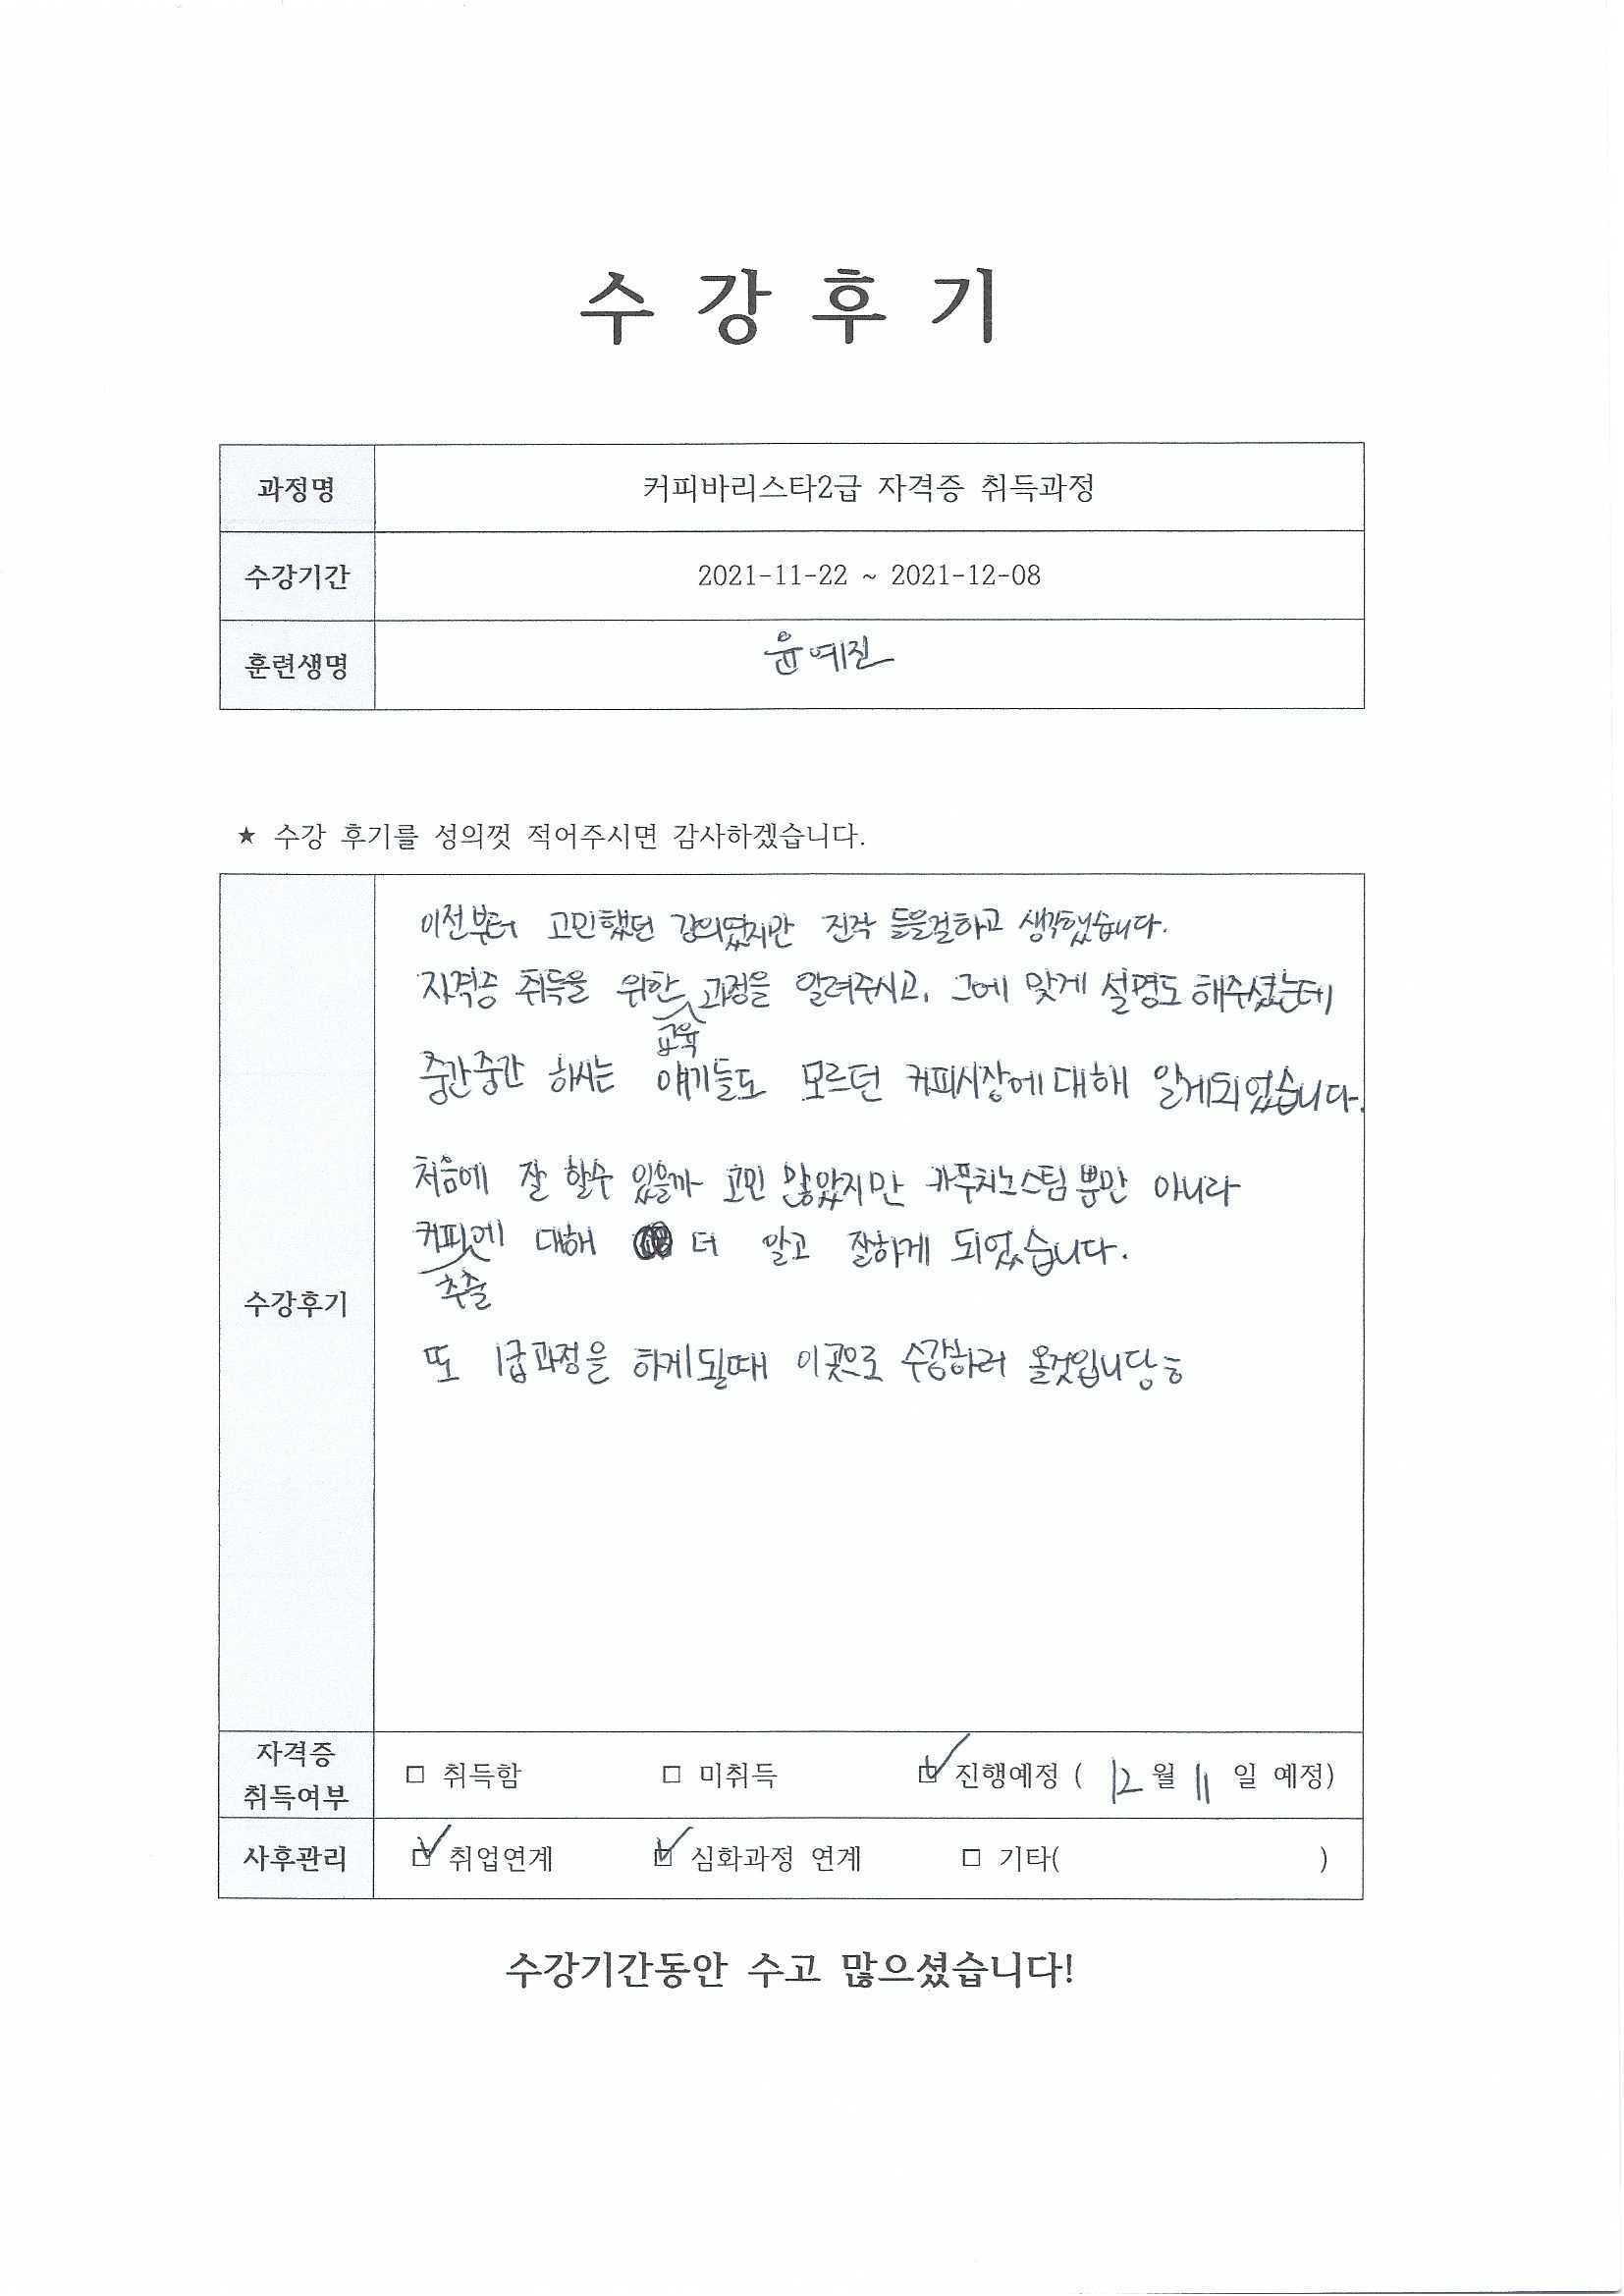 수 강 후 기
과정명 커피바리스타2급 자격증 취득과정
수강기간 2021-11-22 ~ 2021-12-08
훈련생명 윤예진
★ 수강 후기를 성의껏 적어주시면 감사하겠습니다.
수강후기
이전부터 고민했던 강의였지만 진작 들을걸하고 생각했습니다.
자격증 취득을 위한 교육 과정을 알려주시고, 그에 맞게 설명도 해주셨는데
중간중간 하시는 얘기들도 모르던 커피시장에 대해 알게되었습니다.
처음에 잘 할수 있을까 고민 많았지만 카푸치노스팀 뿐만 아니라
커피추출에 대해 더 알고 잘하게 되었습니다.
또 1급과정을 하게될때 이곳으로 수강하러 올것입니당ㅎ
자격증 취득여부 □ 취득함 □ 미취득 ☑ 진행예정 ( 12 월 11 일 예정)
사후관리 ☑ 취업연계 ☑ 심화과정 연계 □ 기타( )
수강기간동안 수고 많으셨습니다!